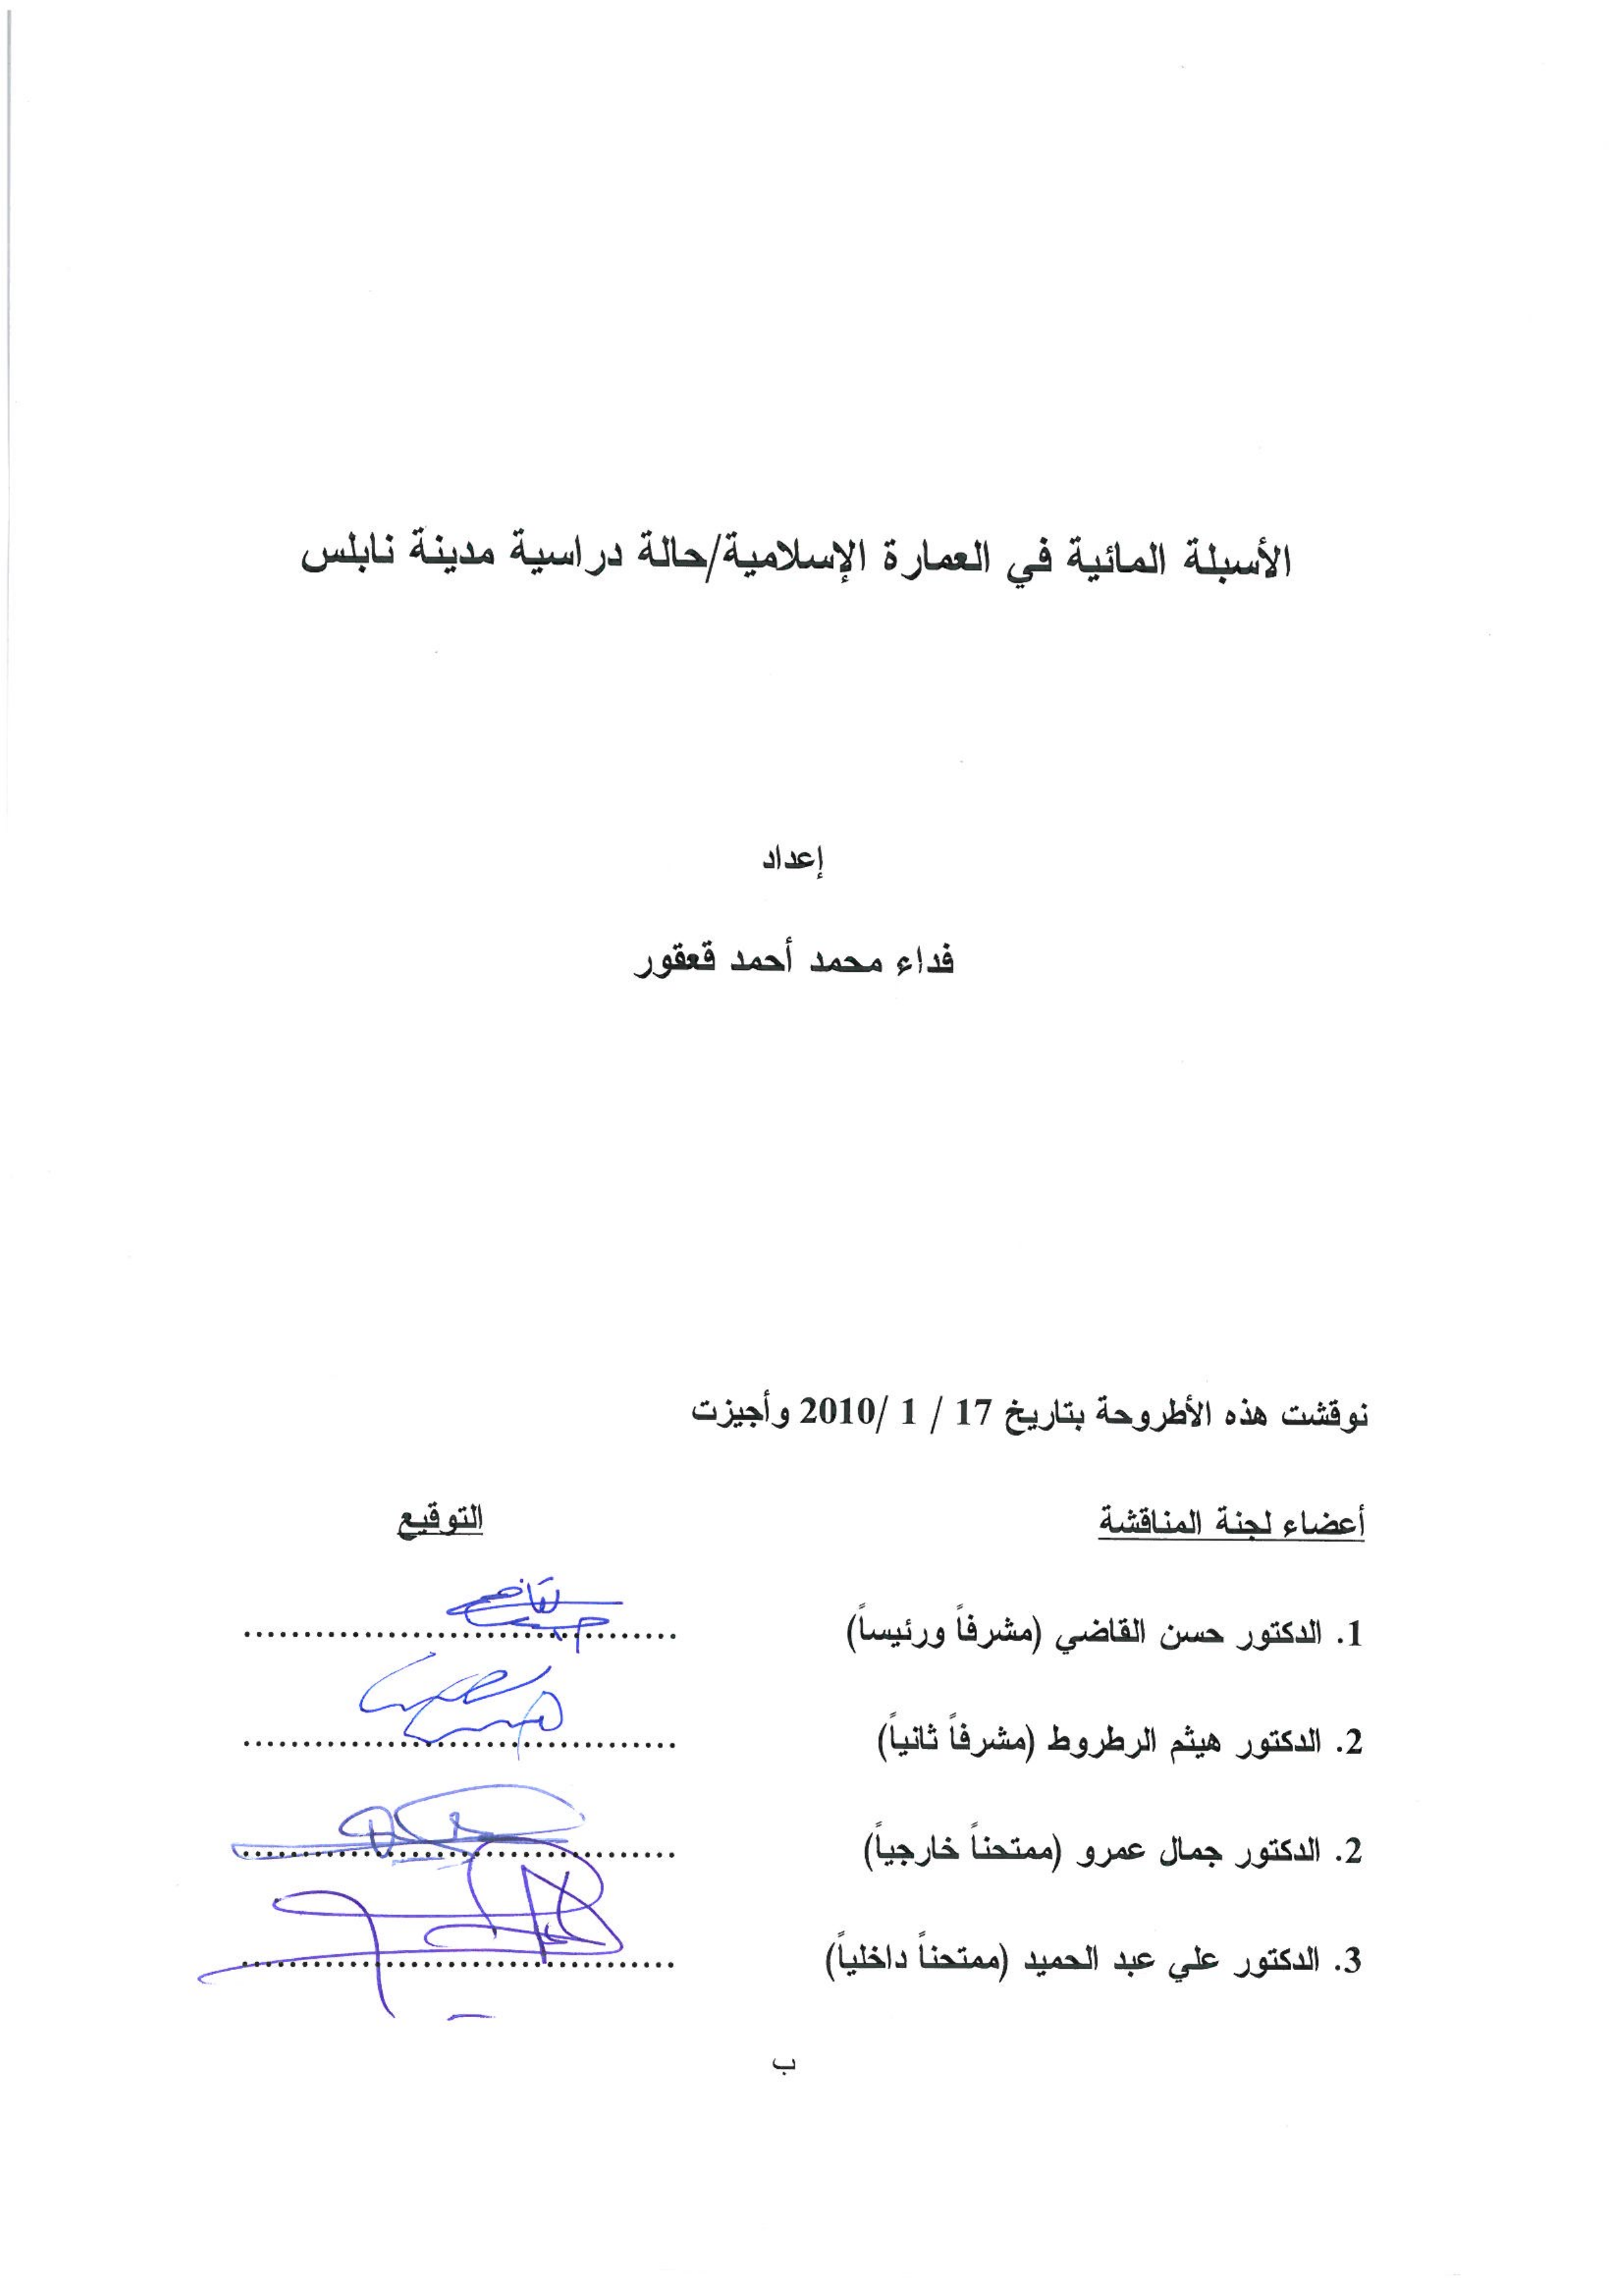 الأسبلة المائية في العمارة الإسلامية/حالة دراسية مدينة نابلس
إعداد
فداء محمد أحمد قعقور
نوقشت هذه الأطروحة بتاريخ 17 / 1 /2010 وأجيزت
أعضاء لجنة المناقشة التوقيع
1. الدكتور حسن القاضي (مشرفاً ورئيساً) ....................................
2. الدكتور هيثم الرطروط (مشرفاً ثانياً) ....................................
2. الدكتور جمال عمرو (ممتحناً خارجياً) ....................................
3. الدكتور علي عبد الحميد (ممتحناً داخلياً) ....................................
ب